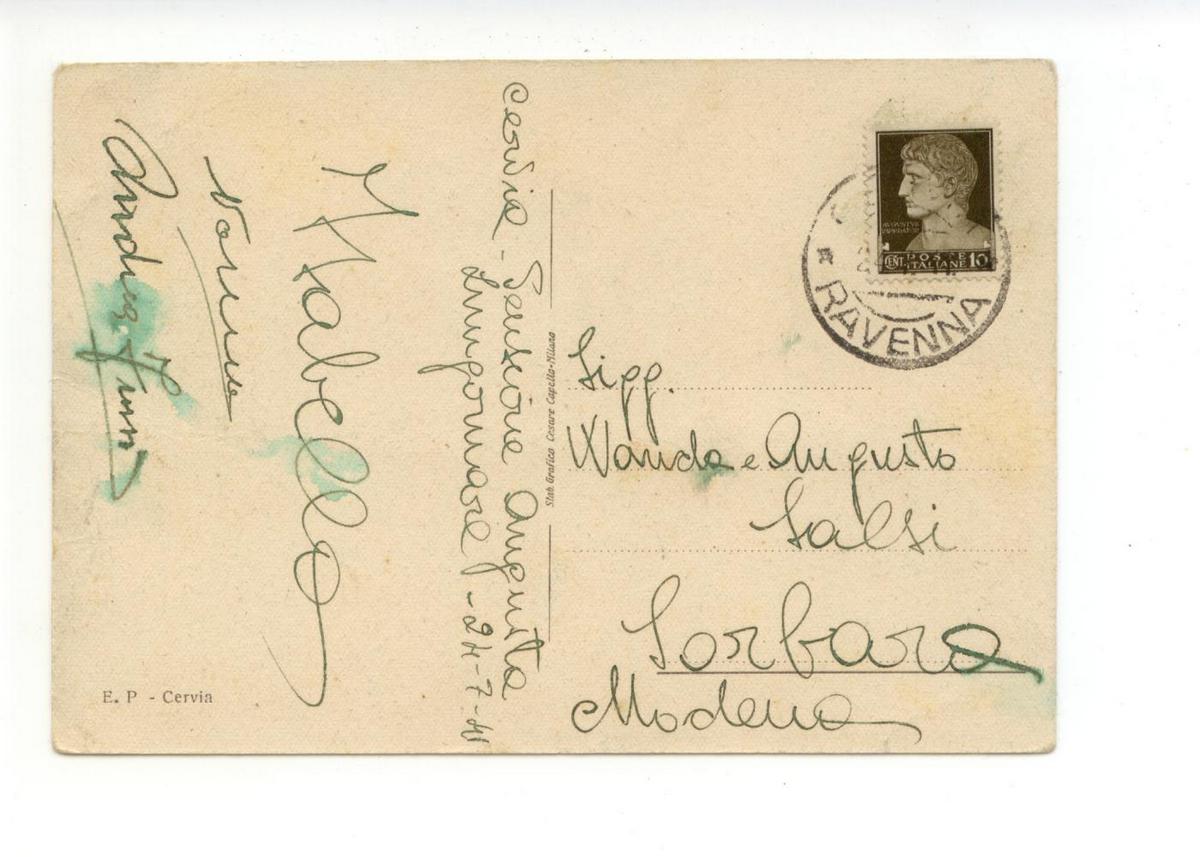 Cervia - Pensione Augusta
Lungomare - 24-7-41
Mabello
E. P - Cervia
Stab. Grafico Cesare Capello-Milano
AUGUSTVS
IMPERATOR
CENT. POSTE ITALIANE 10
RAVENNA
Sigg.
Wanda e Augusto
Salsi
Sorbara
Modena